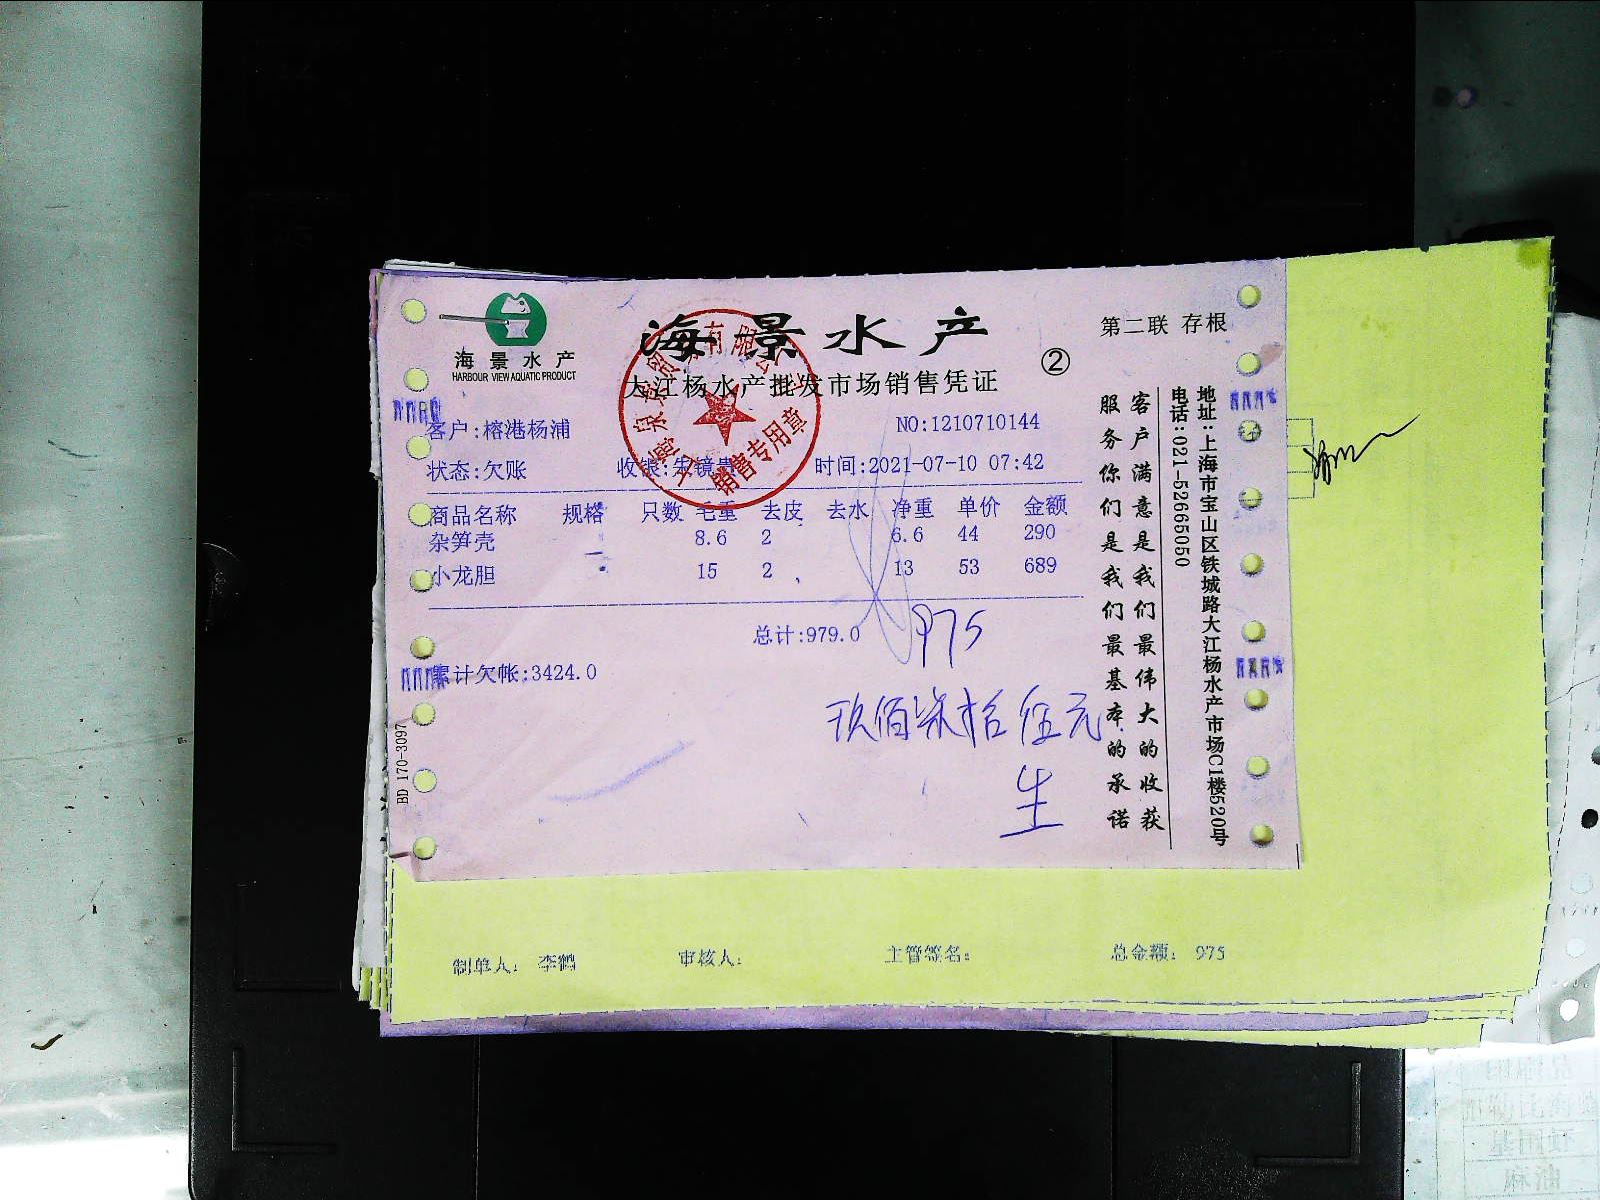 海景水产
HARBOUR VIEW AQUATIC PRODUCT
海景水产
第二联 存根
②
大江杨水产批发市场销售凭证
客户:榕港杨浦
NO:1210710144
状态:欠账
收银:朱镜贵
时间:2021-07-10 07:42
商品名称 规格 只数 毛重 去皮 去水 净重 单价 金额
杂笋壳 8.6 2 6.6 44 290
小龙胆 15 2 13 53 689
总计:979.0
975
累计欠帐:3424.0
玖佰柒拾伍元
生
销售专用章
客户满意是我们最伟大的收获
服务你们是我们最基本的承诺
地址:上海市宝山区铁城路大江杨水产市场C1楼520号
电话:021-52665050
BD 170-3097
制单人: 李鹤 审核人: 主管签名: 总金额: 975